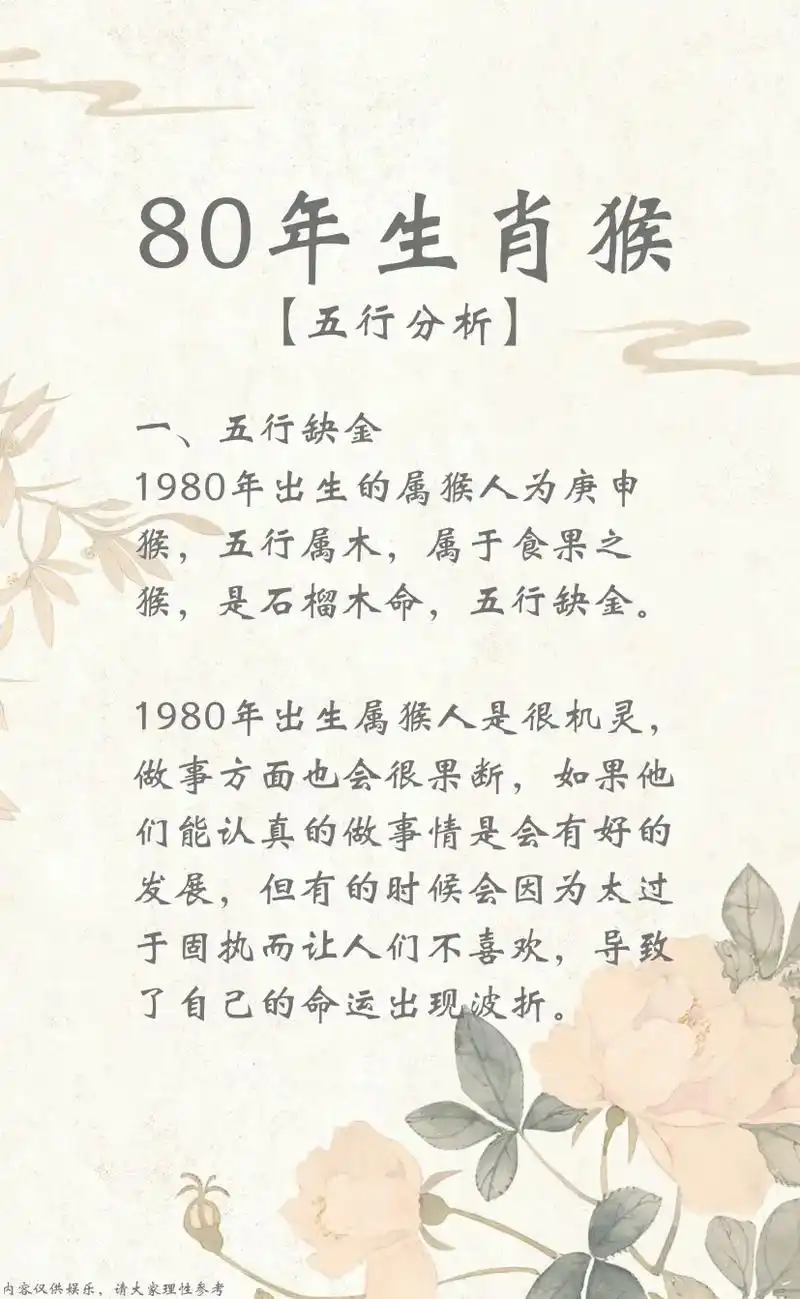 80年生肖猴
【五行分析】
一、五行缺金
1980年出生的属猴人为庚申
猴，五行属木，属于食果之
猴，是石榴木命，五行缺金。
1980年出生属猴人是很机灵，
做事方面也会很果断，如果他
们能认真的做事情是会有好的
发展，但有的时候会因为太过
于固执而让人们不喜欢，导致
了自己的命运出现波折。
内容仅供娱乐，请大家理性参考